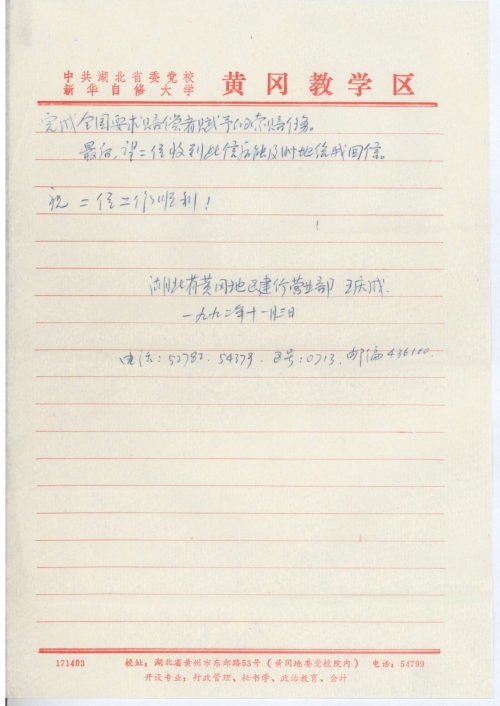 中共湖北省委党校
新华自修大学 黄冈教学区
完成全国要求赔偿者赋予的索赔任务。
最后，望二位收到此信后能及时地给我回信。
祝二位工作顺利！
湖北省黄冈地区建行营业部 王庆成.
一九九二年十一月三日
电话：52782. 54379. 区号：0713. 邮编 436100.
171403 校址：湖北省黄州市东郊路53号（黄冈地委党校院内） 电话：54799
开设专业：行政管理、秘书学、政治教育、会计